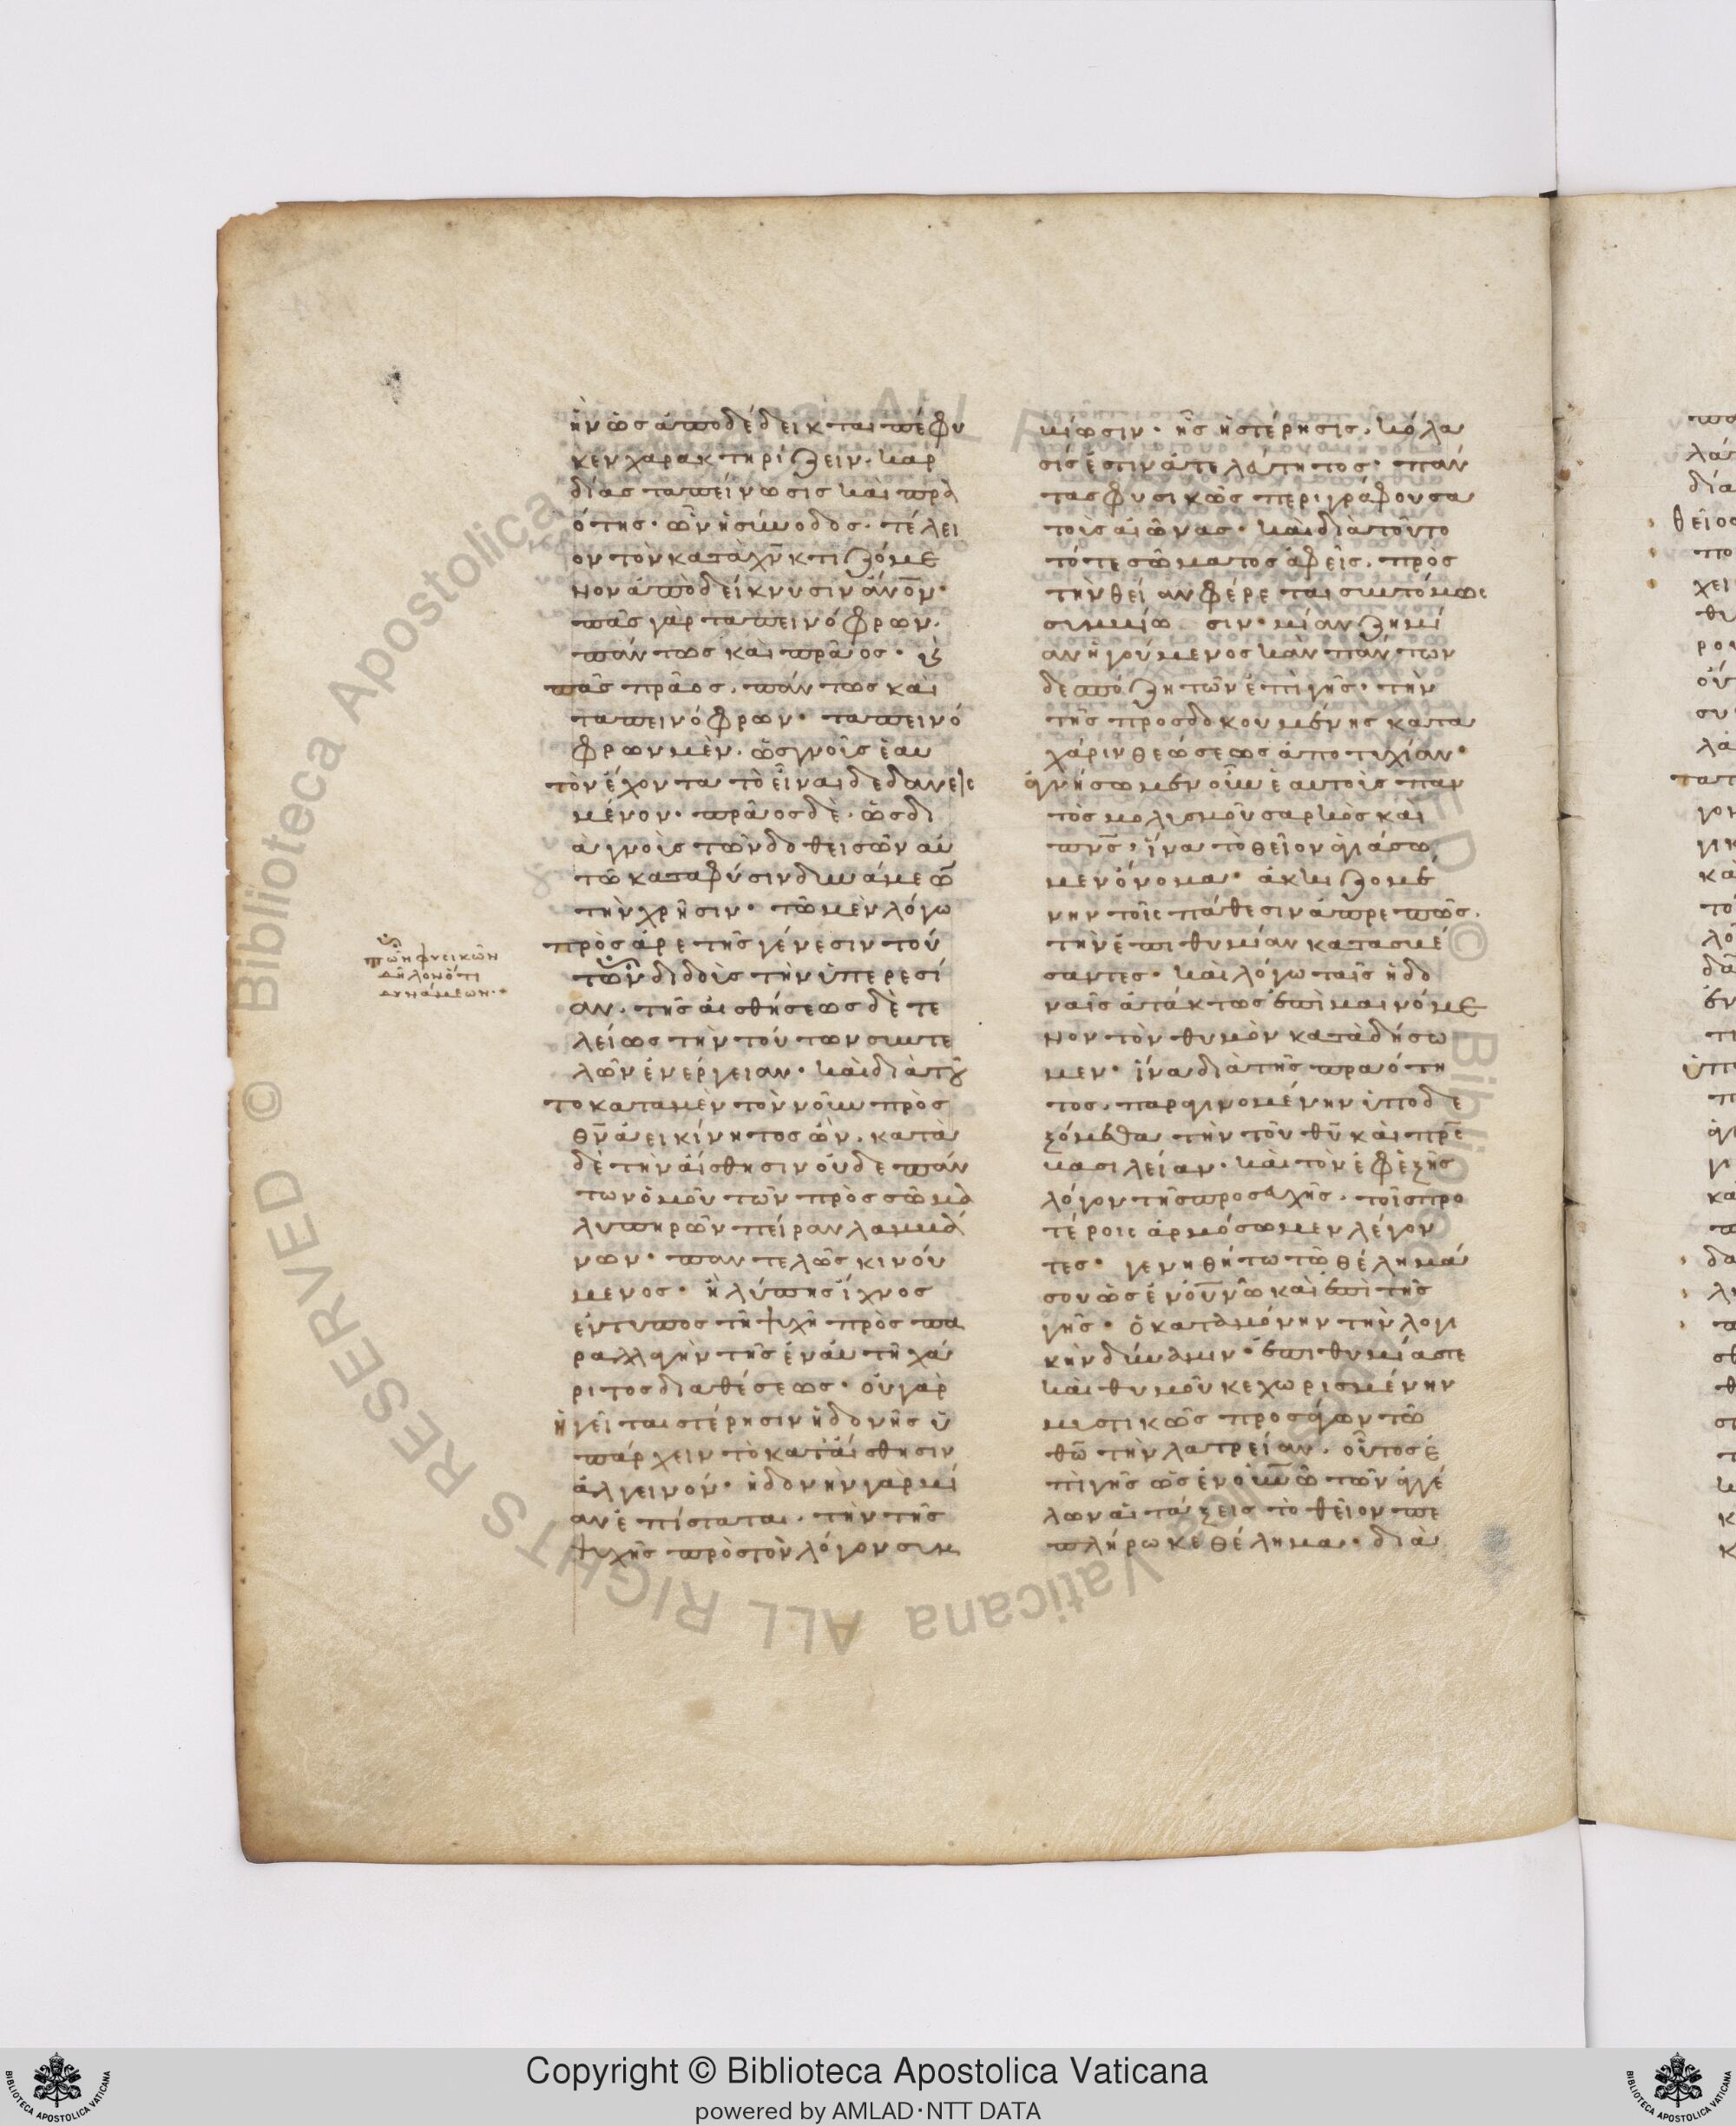 ἣν ὡς ἀποδέδεικται πέφυ
κεν χαρακτηρίζειν. καρ
δίας ταπείνωσις καὶ πρα
ότης· ὧν ἡ σύνοδος. τέλει
ον τὸν κατὰ χν κτιζόμε
νον ἀποδείκνυσιν ἄνον·
πᾶς γὰρ ταπεινόφρων.
πάντως καὶ πρᾶος· καὶ
πᾶς πρᾶος. πάντως καὶ
ταπεινόφρων· ταπεινό
φρων μὲν. ὡς γνοὺς ἑαυ
τὸν ἔχοντα τὸ εἶναι δεδανεισ
μένον· πρᾶος δὲ. ὡς δι
αγνοὺς τῶν δοθεισῶν αὐ
τῶ κατὰ φύσιν δυνάμεων
τὴν χρῆσιν· τῶ μὲν λόγω
πρὸς ἀρετῆς γένεσιν τού
των διδοὺς τὴν ὑπερεσί
αν. τῆς αἰσθήσεως δὲ τε
λείως τὴν τούτων συστε
λῶν ἐνέργειαν· καὶ διὰ τοῦ
το κατὰ μὲν τὸν νοῦν πρὸς
θν ἀεικίνητος ὢν. κατὰ
δὲ τὴν αἴσθησιν οὐδὲ πάν
των ὁμοῦ τῶν πρὸς σῶμα
λυπηρῶν πεῖραν λαμβά
νων· παντελῶς κινού
μενος· ἢ λύπης ἴχνος
ἐντυπῶς τῆ ψυχῆ πρὸς πα
ραλλαγὴν τῆς ἐν αὐτῆ χά
ριτος διαθέσεως· οὐ γὰρ
ἡγεῖται στέρησιν ἡδονῆς ὑ
πάρχειν τὸ κατ' αἴσθησιν
ἀλγεινόν· ἡδονὴν γὰρ μί
αν ἐπίσταται. τὴν τῆς
ψυχῆς πρὸς τὸν λόγον συμ
τῶν φυσικῶν
δηλονότι
δυνάμεων·
βίωσιν· ἧς ἡ στέρησις. κόλα
σίς ἐστιν ἀτελεύτητος· πάν
τας φυσικῶς περιγράφουσα
τοὺς αἰῶνας· καὶ διὰ τοῦτο
τό τε σῶματος ἀφεὶς. πρὸς
τὴν θείαν φέρεται συντόνως
συμβίωσιν· μίαν ζημί
αν ἡγούμενος κἂν πάντων
δεσπόζη τῶν ἐπὶ γῆς· τὴν
τῆς προσδοκουμένης κατὰ
χάριν θεώσεως ἀποτυχίαν·
ἁγνήσωμεν οὖν ἑαυτοὺς παν
τὸς μολυσμοῦ σαρκὸς καὶ
πνς· ἵνα τὸ θεῖον ἁγιάσω
μεν ὄνομα· ἀκκιζομέ
νην τοῖς πάθεσιν ἀπρεπῶς.
τὴν ἐπιθυμίαν κατασβέ
σαντες· καὶ λόγω ταῖς ἡδο
ναῖς ἀτάκτως ἐπιμαινόμε
νον τὸν θυμὸν καταδήσω
μεν· ἵνα διὰ τῆς πραότη
τος. παραγινομένην ὑποδε
ξόμεθα τὴν τοῦ θυ καὶ πρς
βασιλείαν· καὶ τὸν ἐφεξῆς
λόγον τῆς προσευχῆς. τοῖς προ
τέροις ἁρμόσωμεν λέγον
τες· γενηθήτω τὸ θέλημά
σου ὡς ἐν οὐνῶ καὶ ἐπὶ τῆς
γῆς· ὁ κατὰ μόνην τὴν λογι
κὴν δύναμιν· ἐπιθυμίας τε
καὶ θυμοῦ κεχωρισμένην
μυστικῶς προσάγων τῶ
θῶ τὴν λατρείαν. οὗτος ἐ
πὶ γῆς ὡς ἐν οὐνῶ τῶν ἀγγέ
λων αἱ τάξεις τὸ θεῖον πε
πλήρωκε θέλημα· διὰ
Copyright © Biblioteca Apostolica Vaticana
powered by AMLAD·NTT DATA